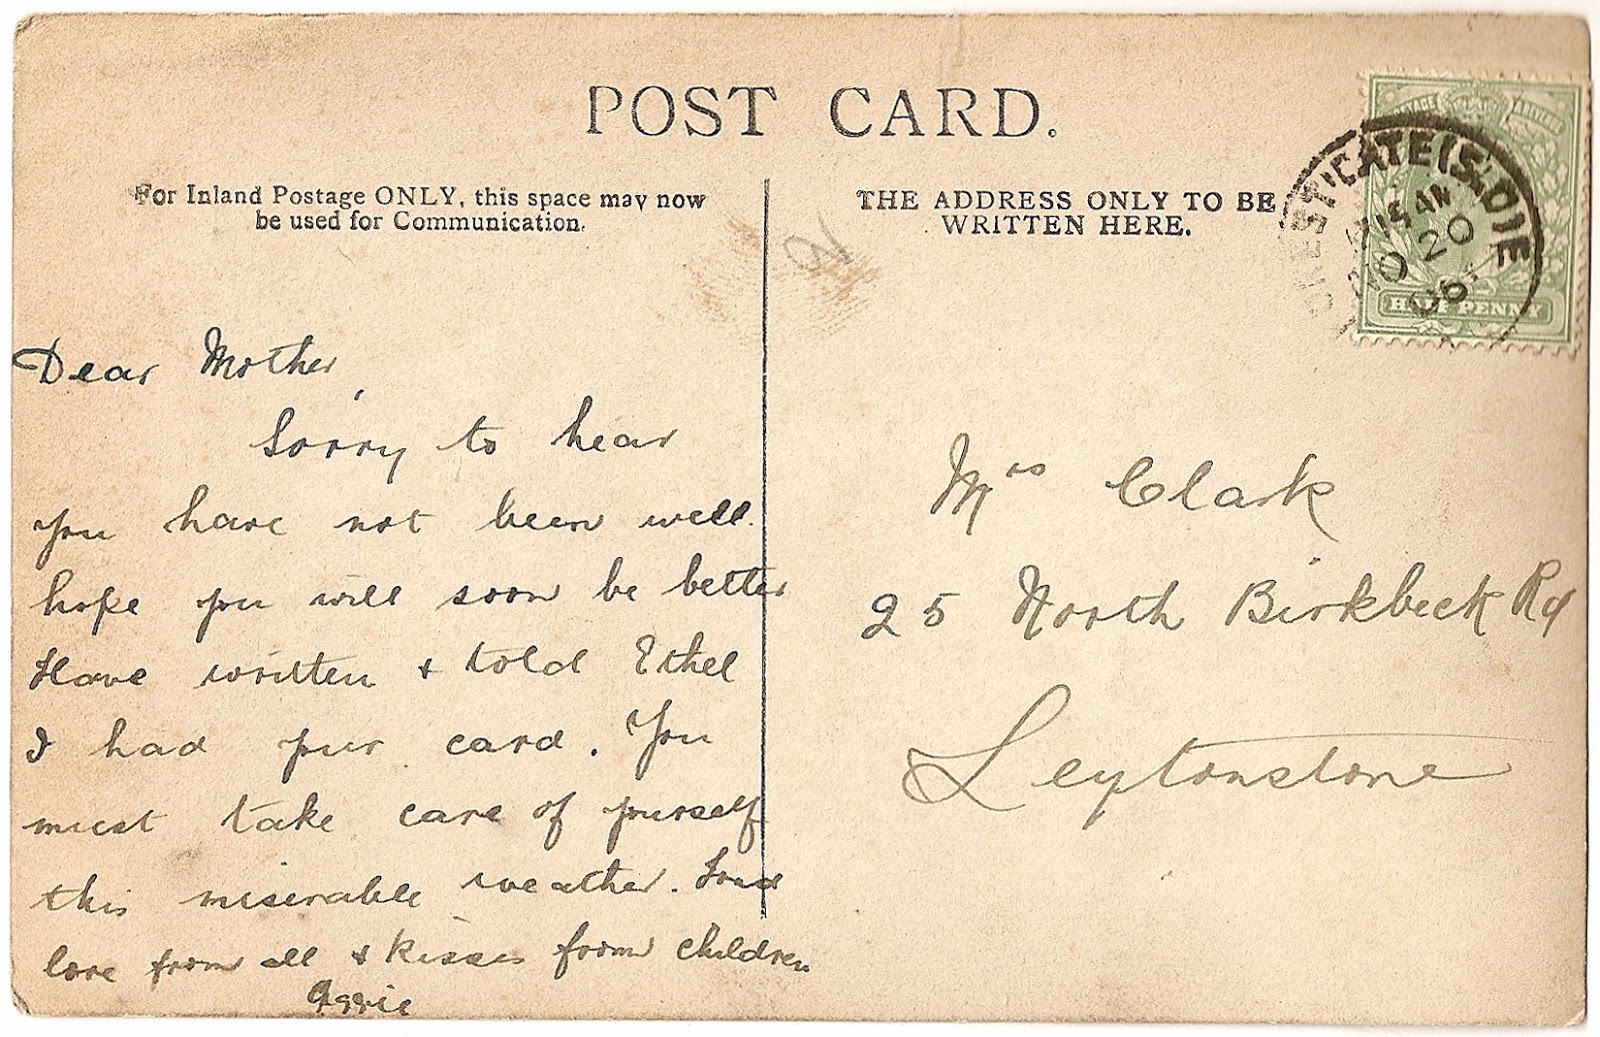 POST CARD.
For Inland Postage ONLY, this space may now
be used for Communication.
THE ADDRESS ONLY TO BE
WRITTEN HERE.
POSTAGE
HALF PENNY
REST GATE (S.O) IE
15 AM
NO 20
06
Dear Mother,
Sorry to hear
you have not been well.
hope you will soon be better
Have written & told Ethel
I had your card. You
must take care of yourself
this miserable weather. Fond
love from all & kisses from children
Aggie
Mrs Clark
25 North Birkbeck Rd
Leytonstone